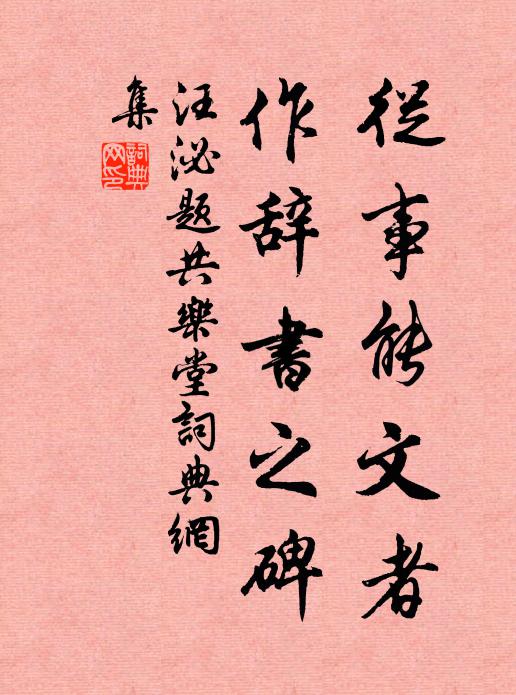 從事能文者
作辞書之碑
汪泌題共樂堂詞典網
集
詞典网印